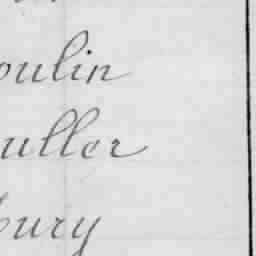 oulin
uller
bury